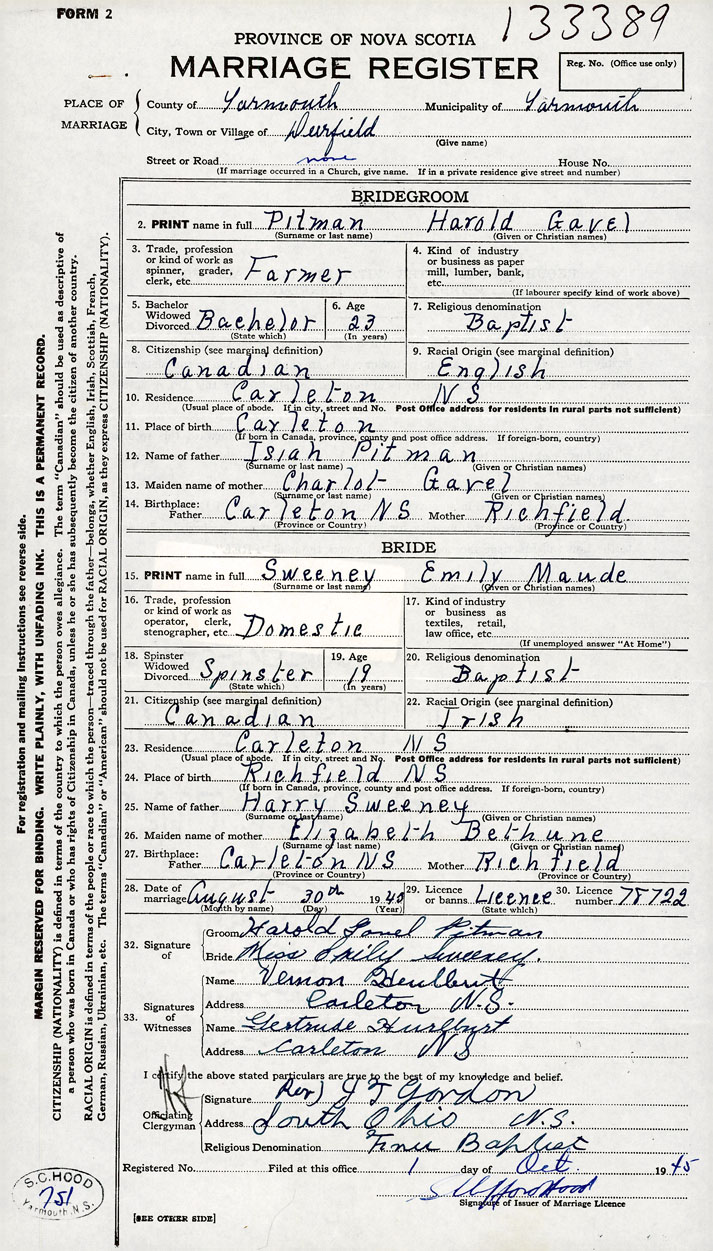 FORM 2
133389
PROVINCE OF NOVA SCOTIA
MARRIAGE REGISTER
Reg. No. (Office use only)
PLACE OF MARRIAGE
County of Yarmouth Municipality of Yarmouth
City, Town or Village of Deerfield
(Give name)
Street or Road none House No.
(If marriage occurred in a Church, give name. If in a private residence give street and number)
BRIDEGROOM
2. PRINT name in full Pitman Harold Gavel
(Surname or last name) (Given or Christian names)
3. Trade, profession or kind of work as spinner, grader, clerk, etc. Farmer
4. Kind of industry or business as paper mill, lumber, bank, etc.
(If labourer specify kind of work above)
5. Bachelor Widowed Divorced Bachelor
(State which)
6. Age 23
(In years)
7. Religious denomination Baptist
8. Citizenship (see marginal definition) Canadian
9. Racial Origin (see marginal definition) English
10. Residence Carleton NS
(Usual place of abode. If in city, street and No. Post Office address for residents in rural parts not sufficient)
11. Place of birth Carleton
(If born in Canada, province, county and post office address. If foreign-born, country)
12. Name of father Isiah Pitman
(Surname or last name) (Given or Christian names)
13. Maiden name of mother Charlot Gavel
(Surname or last name) (Given or Christian names)
14. Birthplace: Father Carleton NS Mother Richfield
(Province or Country) (Province or Country)
BRIDE
15. PRINT name in full Sweeney Emily Maude
(Surname or last name) (Given or Christian names)
16. Trade, profession or kind of work as operator, clerk, stenographer, etc. Domestic
17. Kind of industry or business as textiles, retail, law office, etc.
(If unemployed answer "At Home")
18. Spinster Widowed Divorced Spinster
(State which)
19. Age 19
(In years)
20. Religious denomination Baptist
21. Citizenship (see marginal definition) Canadian
22. Racial Origin (see marginal definition) Irish
23. Residence Carleton NS
(Usual place of abode. If in city, street and No. Post Office address for residents in rural parts not sufficient)
24. Place of birth Richfield NS
(If born in Canada, province, county and post office address. If foreign-born, country)
25. Name of father Harry Sweeney
(Surname or last name) (Given or Christian names)
26. Maiden name of mother Elizabeth Bethune
(Surname or last name) (Given or Christian names)
27. Birthplace: Father Carleton NS Mother Richfield
(Province or Country) (Province or Country)
28. Date of marriage August 30th 1945
(Month by name) (Day) (Year)
29. Licence or banns Licence
(State which)
30. Licence number 78722
32. Signature of
Groom Harold Gavel Pitman
Bride Miss Emily Sweeney.
33. Signatures of Witnesses
Name Vernon Hurlburt
Address Carleton N.S.
Name Gertrude Hurlburt
Address Carleton NS
I certify the above stated particulars are true to the best of my knowledge and belief.
Officiating Clergyman
Signature Rev) J T Gordon
Address South Ohio N.S.
Religious Denomination Baptist
Registered No. Filed at this office 1 day of Oct. 1945
Signature of Issuer of Marriage Licence
[SEE OTHER SIDE]
S.C. HOOD
751
Yarmouth, N.S.
For registration and mailing instructions see reverse side.
MARGIN RESERVED FOR BINDING. WRITE PLAINLY, WITH UNFADING INK. THIS IS A PERMANENT RECORD.
CITIZENSHIP (NATIONALITY) is defined in terms of the country to which the person owes allegiance. The term "Canadian" should be used as descriptive of
a person who was born in Canada or who has rights of Citizenship in Canada, unless he or she has subsequently become the citizen of another country.
RACIAL ORIGIN is defined in terms of the people or race to which the person—traced through the father—belongs, whether English, Irish, Scottish, French,
German, Russian, Ukrainian, etc. The terms "Canadian" or "American" should not be used for RACIAL ORIGIN, as they express CITIZENSHIP (NATIONALITY).